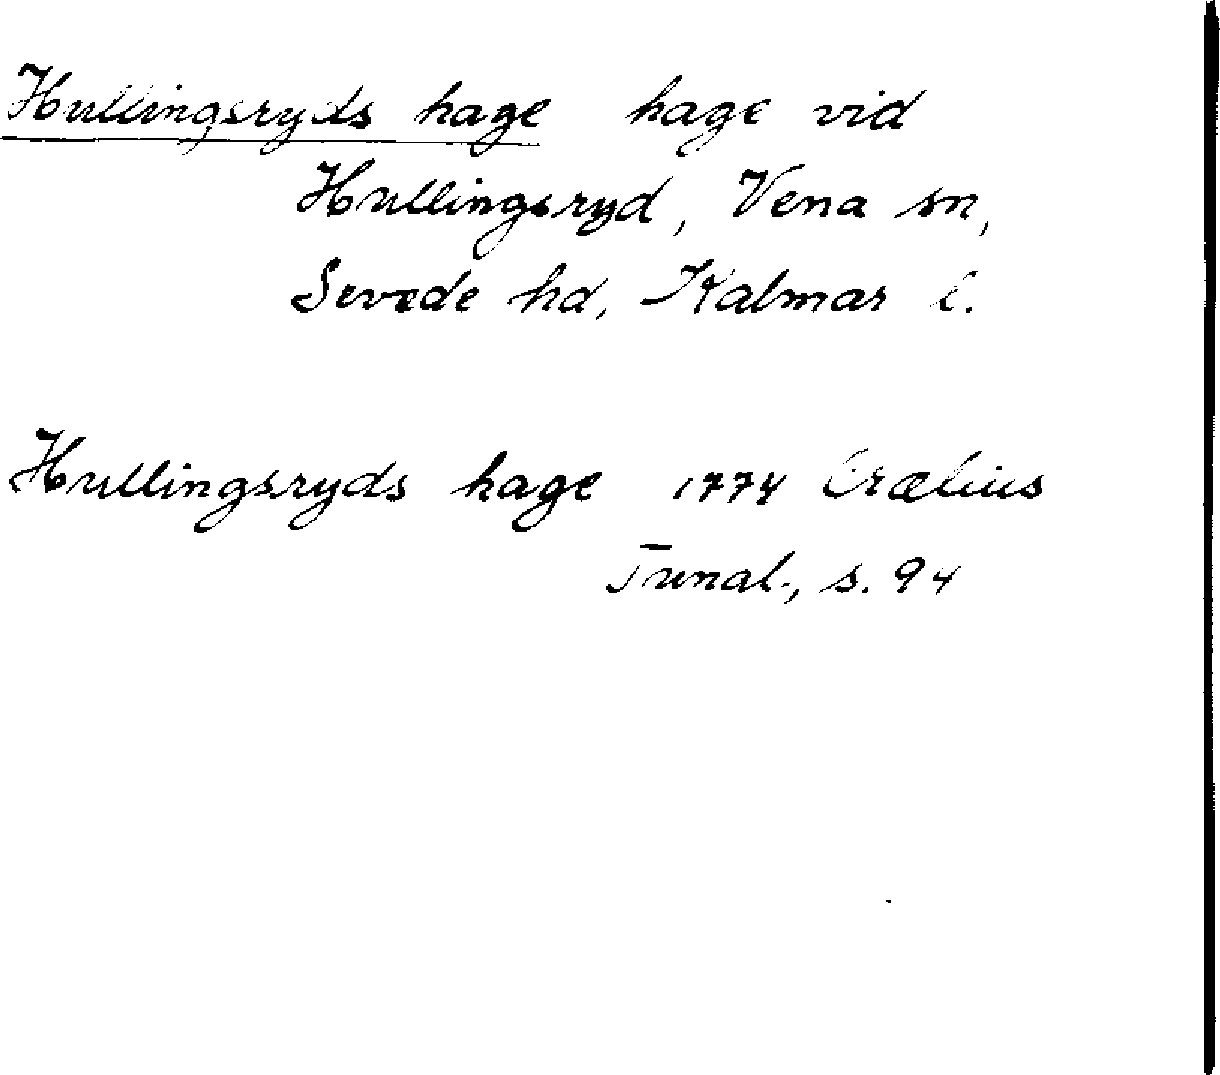 Hullingsryds hage hage vid
Hullingsryd, Vena sn,
Sevede hd, Kalmar l.
Hullingsryds hage 1774 Crælius
Tunal., s. 94